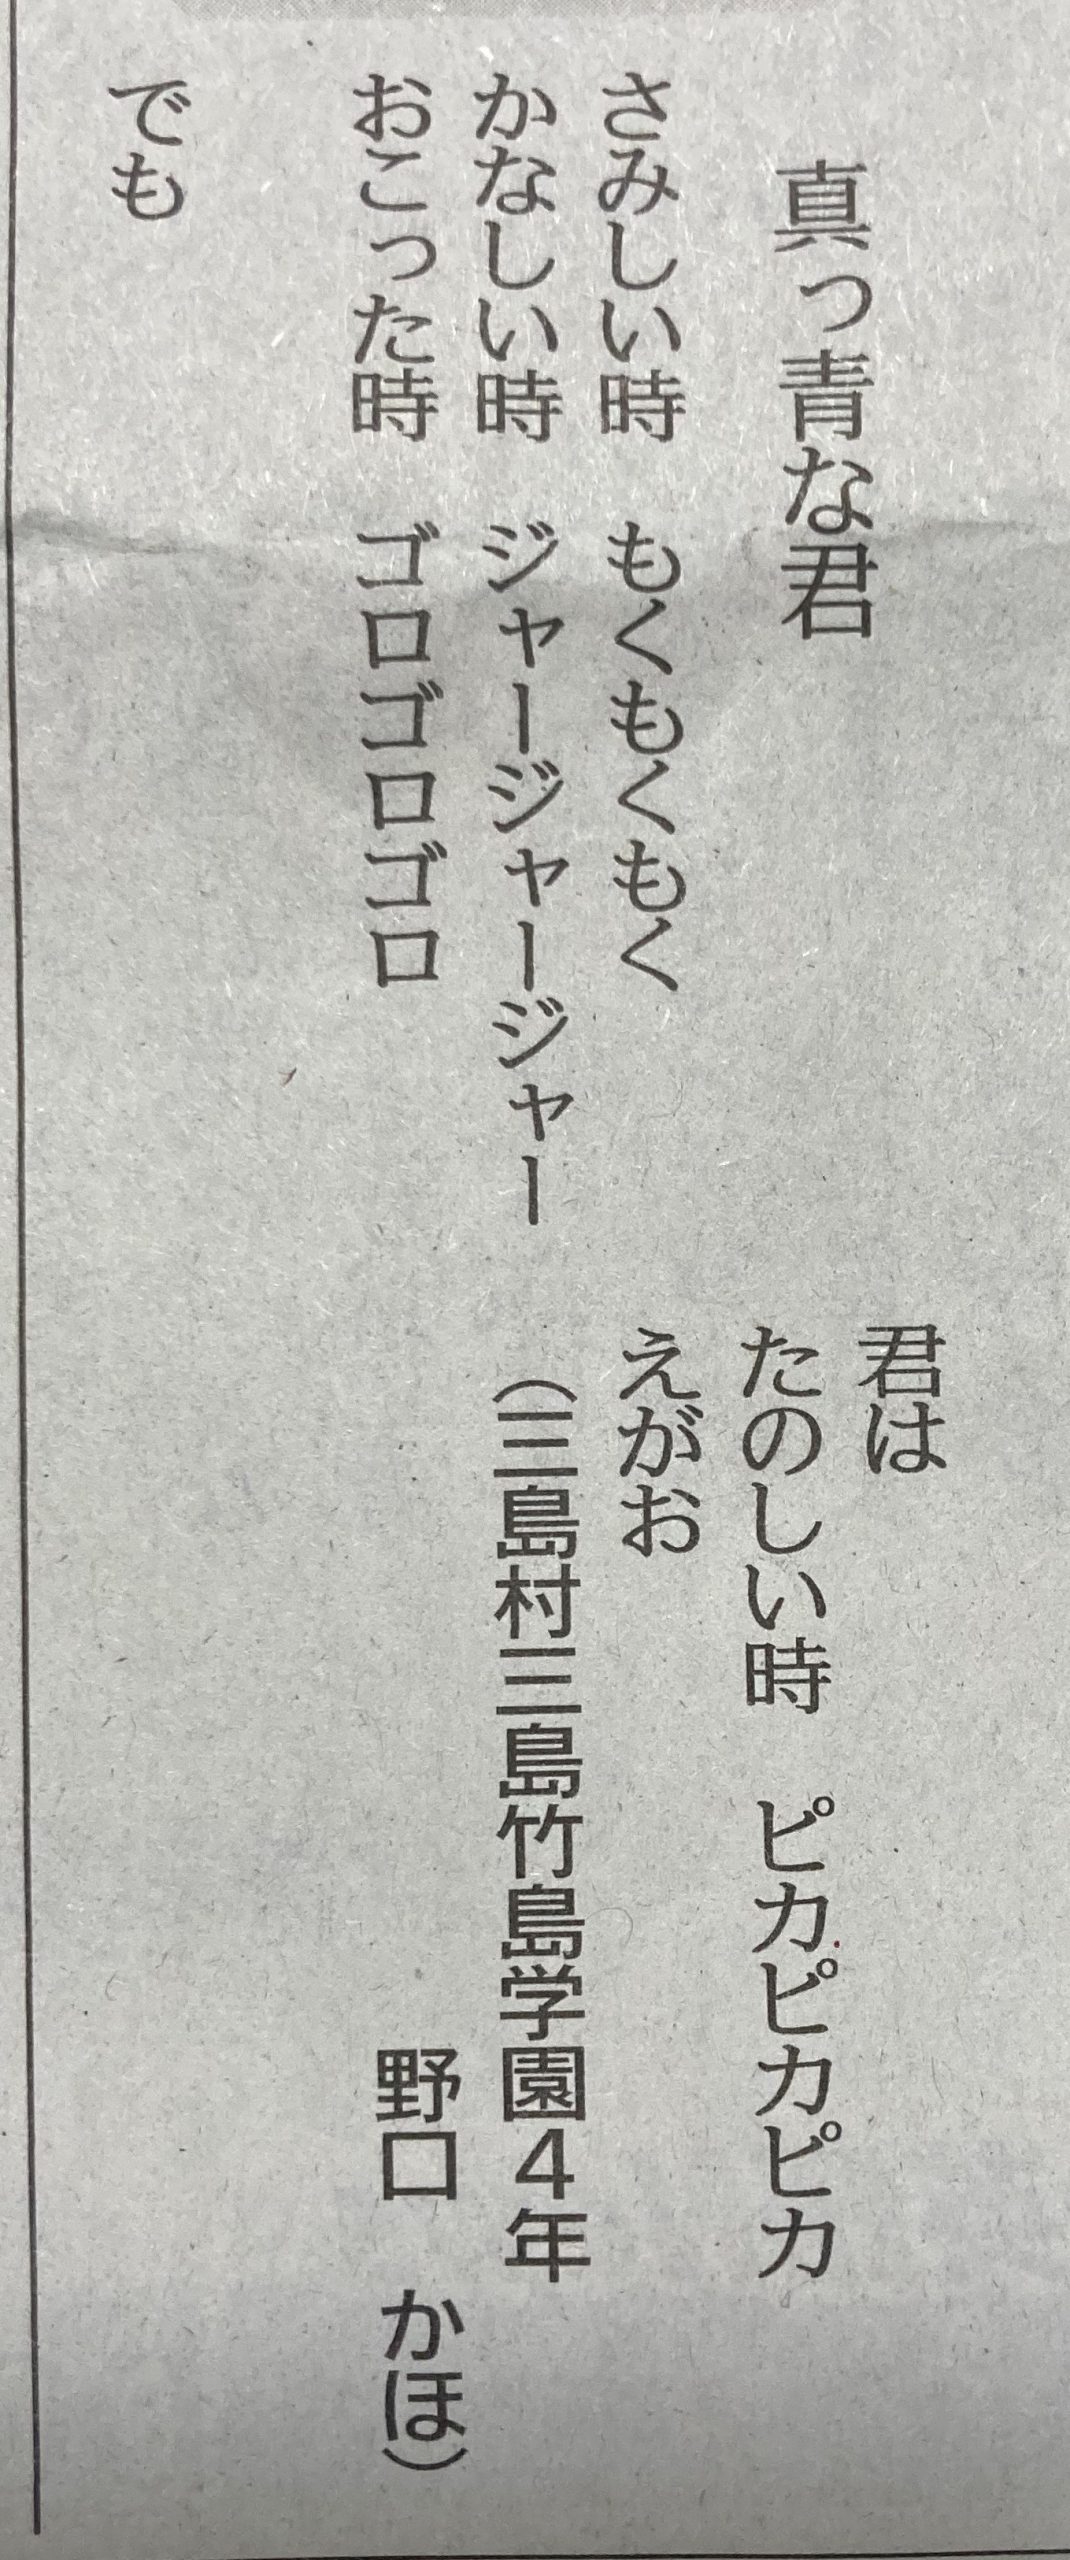 真っ青な君
さみしい時　もくもくもく
かなしい時　ジャージャージャー
おこった時　ゴロゴロゴロ
でも
君は
たのしい時　ピカピカピカ
えがお
（三島村三島竹島学園４年
野口　かほ）